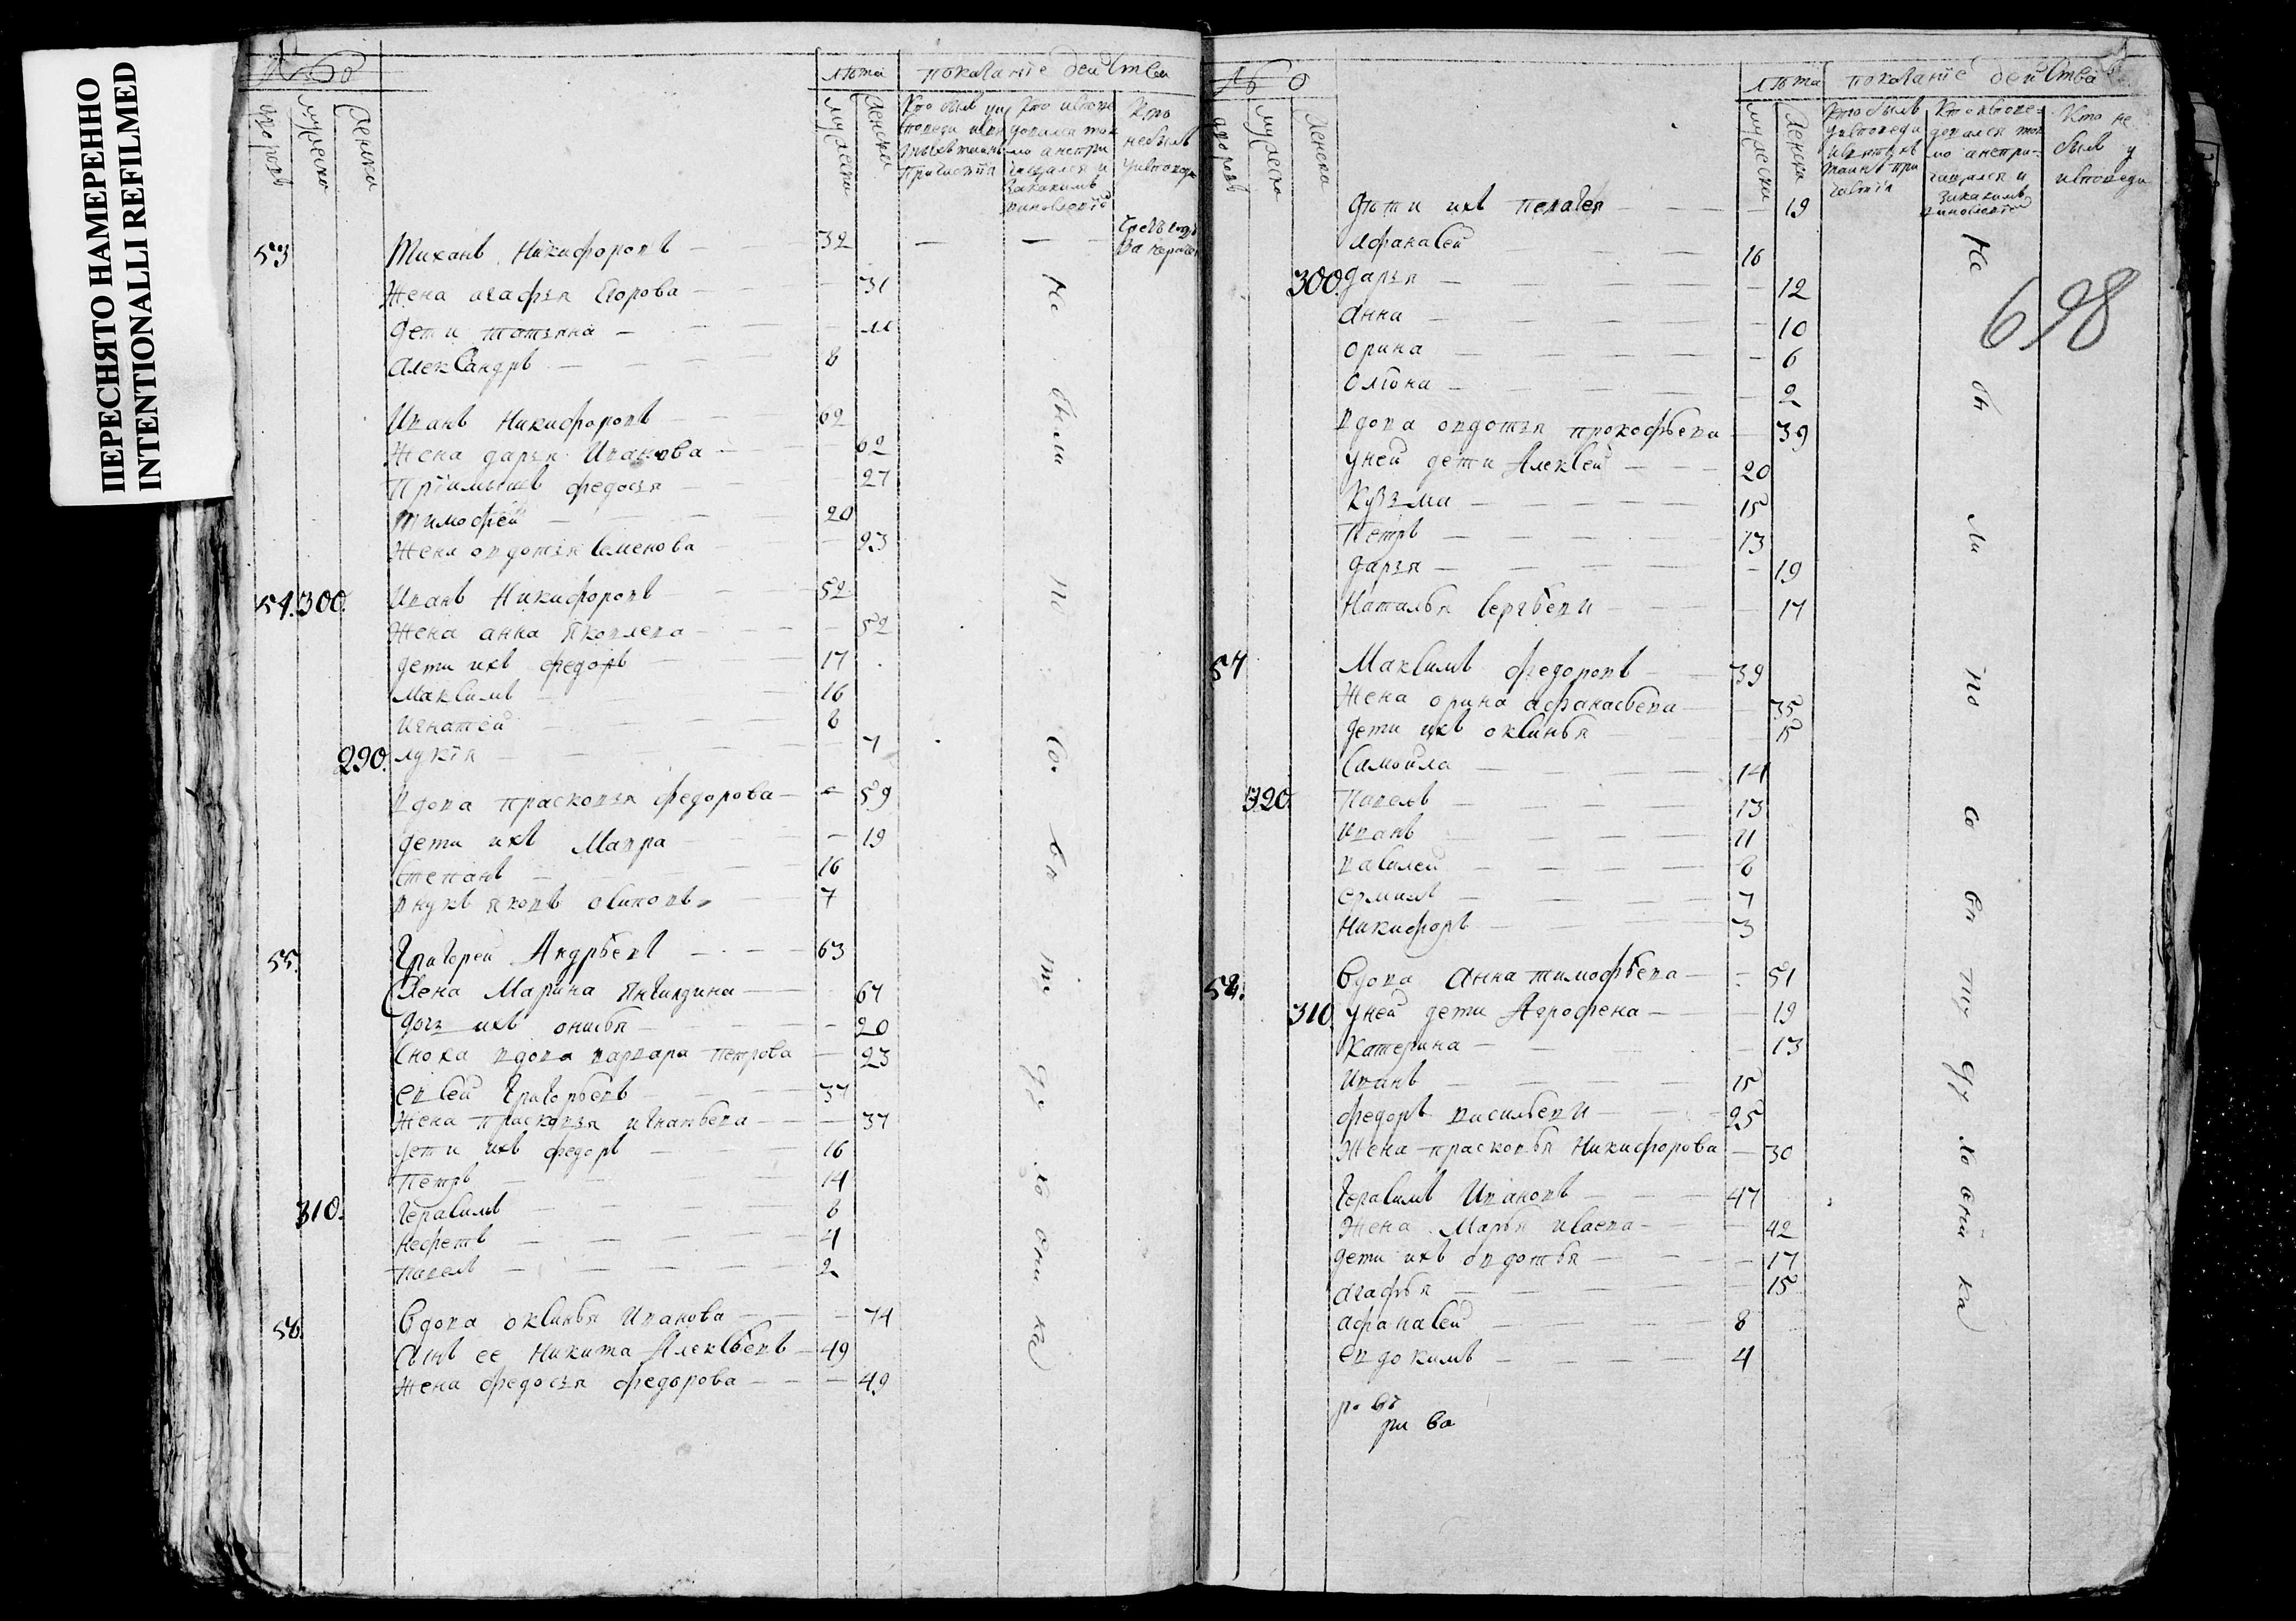 ПЕРЕСНЯТО НАМЕРЕННО
INTENTIONALLI REFILMED
лѣта показанїе действа
дворовъ мужеска женска
мужеска женска
Кто былъ у исповеди и святыхъ таинъ причастїя
Кто исповедался токмо а непричащался и закакимъ виновлениемъ
Кто небылъ уисповеди
53 Михаилъ Никифоровъ 32
Жена агафья Егорова 31
дети татьяна 11
Александръ 8
Иванъ Никифоровъ 62
Жена дарья Иванова 62
Прїимышъ федосья 27
тимофей 20
Жена овдотья Семенова 23
54. 300. Иванъ Никифоровъ 52
Жена анна Яковлева 52
дети ихъ федоръ 17
Максимъ 16
Игнатей 8
290. лукїя 7
Вдова прасковья федорова 59
дети ихъ Мавра 19
Степанъ 16
внукъ яковъ осиповъ 7
55. Григорей Андрѣевъ 63
Жена Марина 67
дочь ихъ онисья 20
Сноха вдова варвара петрова 23
евсей Григорьевъ 37
Жена прасковья игнатьева 37
дети ихъ федоръ 16
Петръ 14
310. Герасимъ 8
Нефетъ 4
Павелъ 2
56. Вдова оксинья Иванова 74
Сынъ ее Никита Алексѣевъ 49
Жена федосья федорова 49
Не были по со ка
лѣта показанїе действа
дворовъ мужеска женска
мужеска женска
Кто былъ уисповеди и святыхъ таинъ причастїя
Кто исповедался токмо а непричащался и закакимъ виновлениемъ
Кто не былъ у исповеди
698
дѣти ихъ пелагея 19
Афанасей 16
300. дарья 12
Анна 10
орина 6
олѣона 2
Вдова овдотья прокофьева 39
уней дети Алексей 20
Кузьма 15
Петръ 13
дарья 19
Наталья Сергѣева 17
57 Максимъ федоровъ 39
Жена орина афанасьева 35
дети ихъ оксинья 15
Самойла 14
320. Павелъ 13
Иванъ 11
василей 8
ермилъ 7
Никифоръ 3
58. Вдова Анна тимофѣева 51
310. уней дети Агрофена 19
Катерина 13
Иванъ 15
федоръ васильевъ 25
Жена прасковья Никифорова 30
Герасимъ Ивановъ 47
Жена Марья исаева 42
дети ихъ овдотья 17
агафья 15
афанасей 8
евдокимъ 4
Не бы ли по со ка